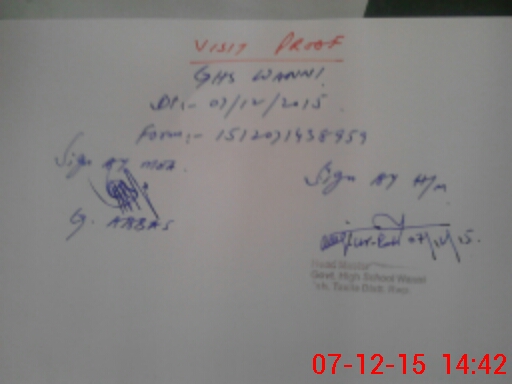 VISIT PROOF
GHS WANNI
Dt:- 07/12/2015
Form:- 1512071438959
Sign AT MEA
Sign AT H/M
G. ABBAS
07/12/15.
Head Master
Govt. High School Wanni
Teh. Taxila Distt. Rwp.
07-12-15 14:42